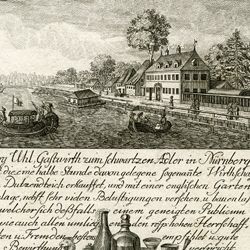 ry Uhl, Gastwirth zum schwartzen Adler in Nürnberg
die eine halbe Stunde davon gelegene sogenañte Wirthscha
Dutzendteich erkauffet, und mit einer englischen Garten
lage, nebst sehr vielen Belustigungen versehen, u. bauen las
welcherfich deßfalls einem geneigten Publicum
wie auch allen umlieg resp. hohen Herrschaf
en u. Fremden
Bewirthung